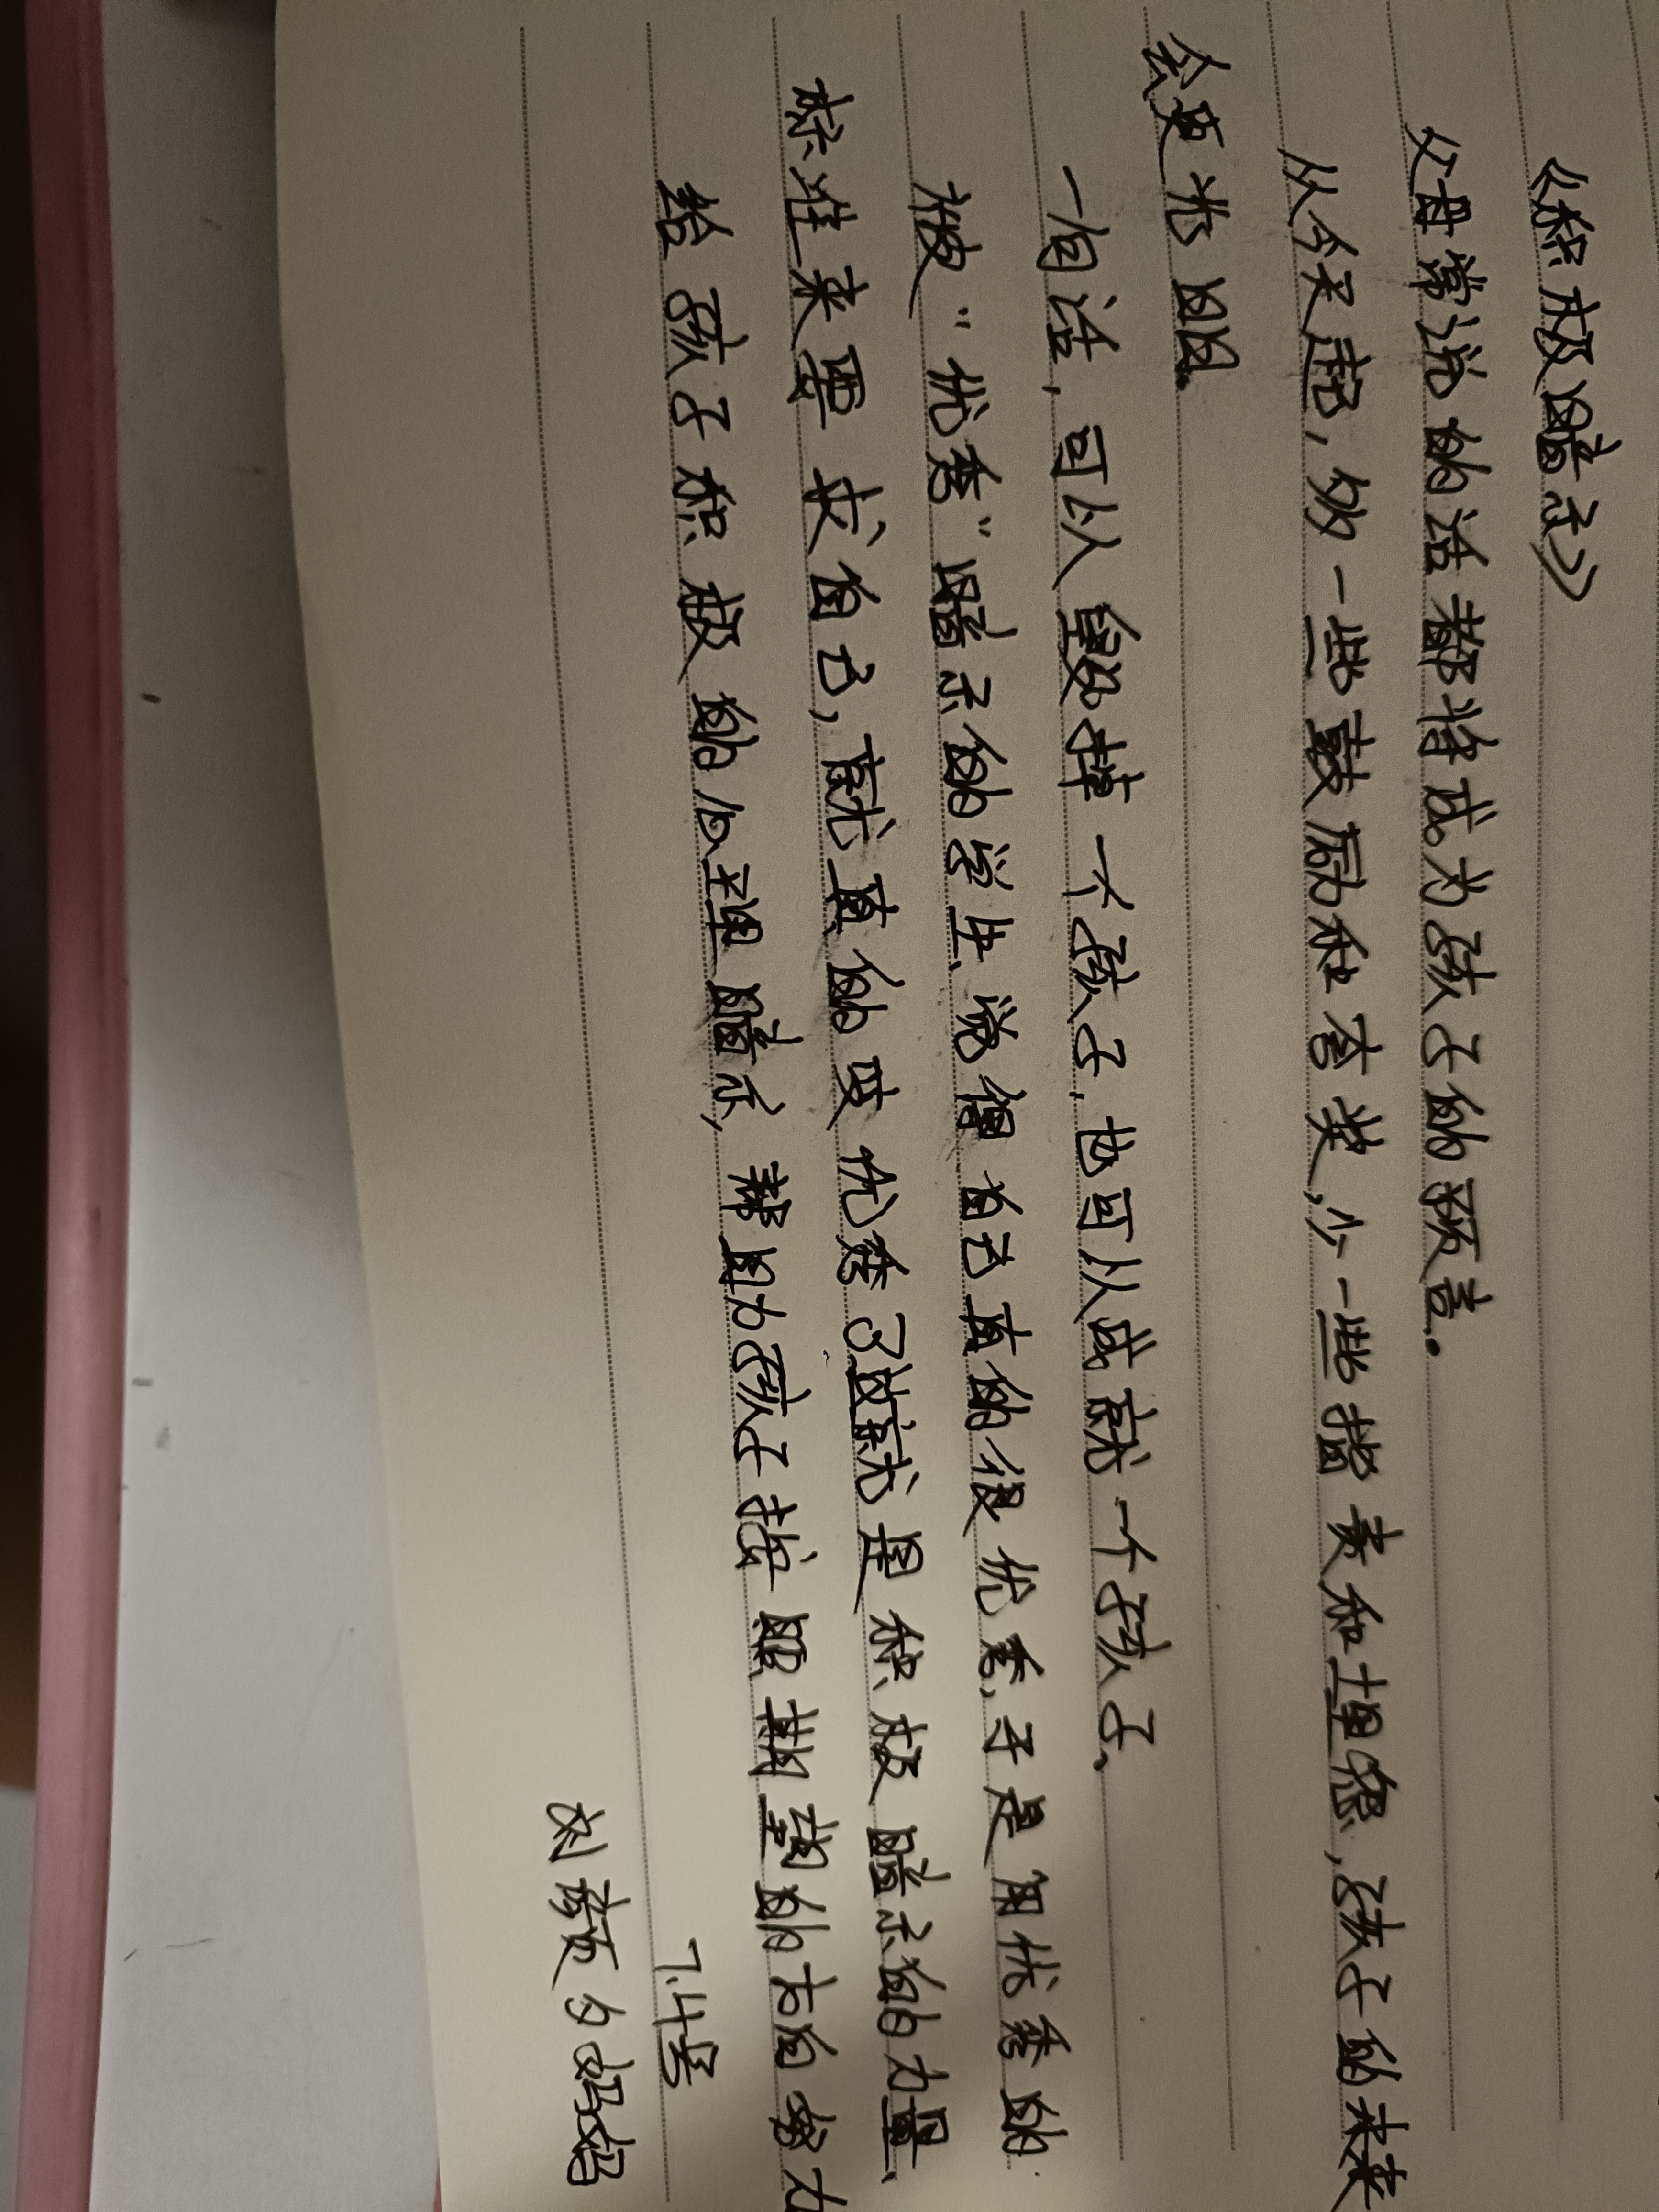 《积极暗示》
父母常说的话都将成为孩子的预言.
从今天起,多一些鼓励和夸奖,少一些指责和埋怨,孩子的未来
会更光明.
一句话,可以毁掉一个孩子,也可以成就一个孩子、
被“优秀”暗示的学生、觉得自己真的很优秀,于是用优秀的
标准来要求自己,就真的变优秀了这就是积极暗示的力量、
给孩子积极的心理暗示,帮助孩子按照期望的方向努力
7.4号
刘夕妈妈